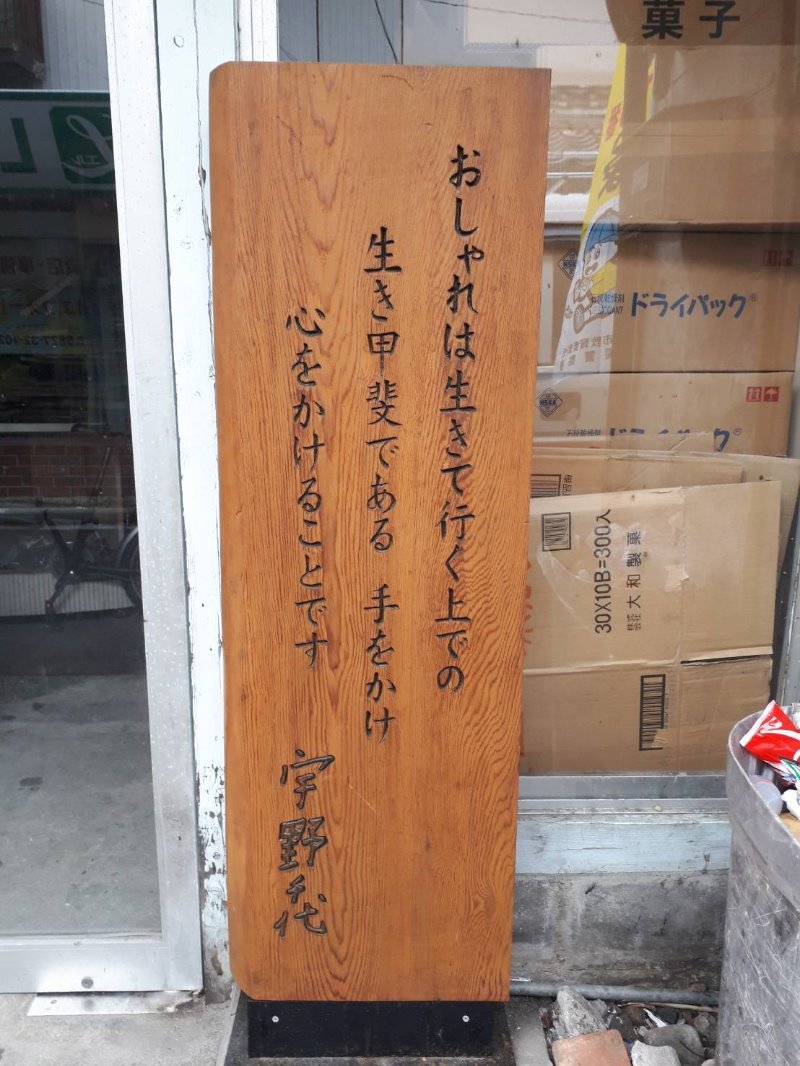 おしゃれは生きて行く上での
生き甲斐である 手をかけ
心をかけることです
宇野千代
菓子
エル
L
ドライパック
30X10B=300入
株式会社 大和製菓